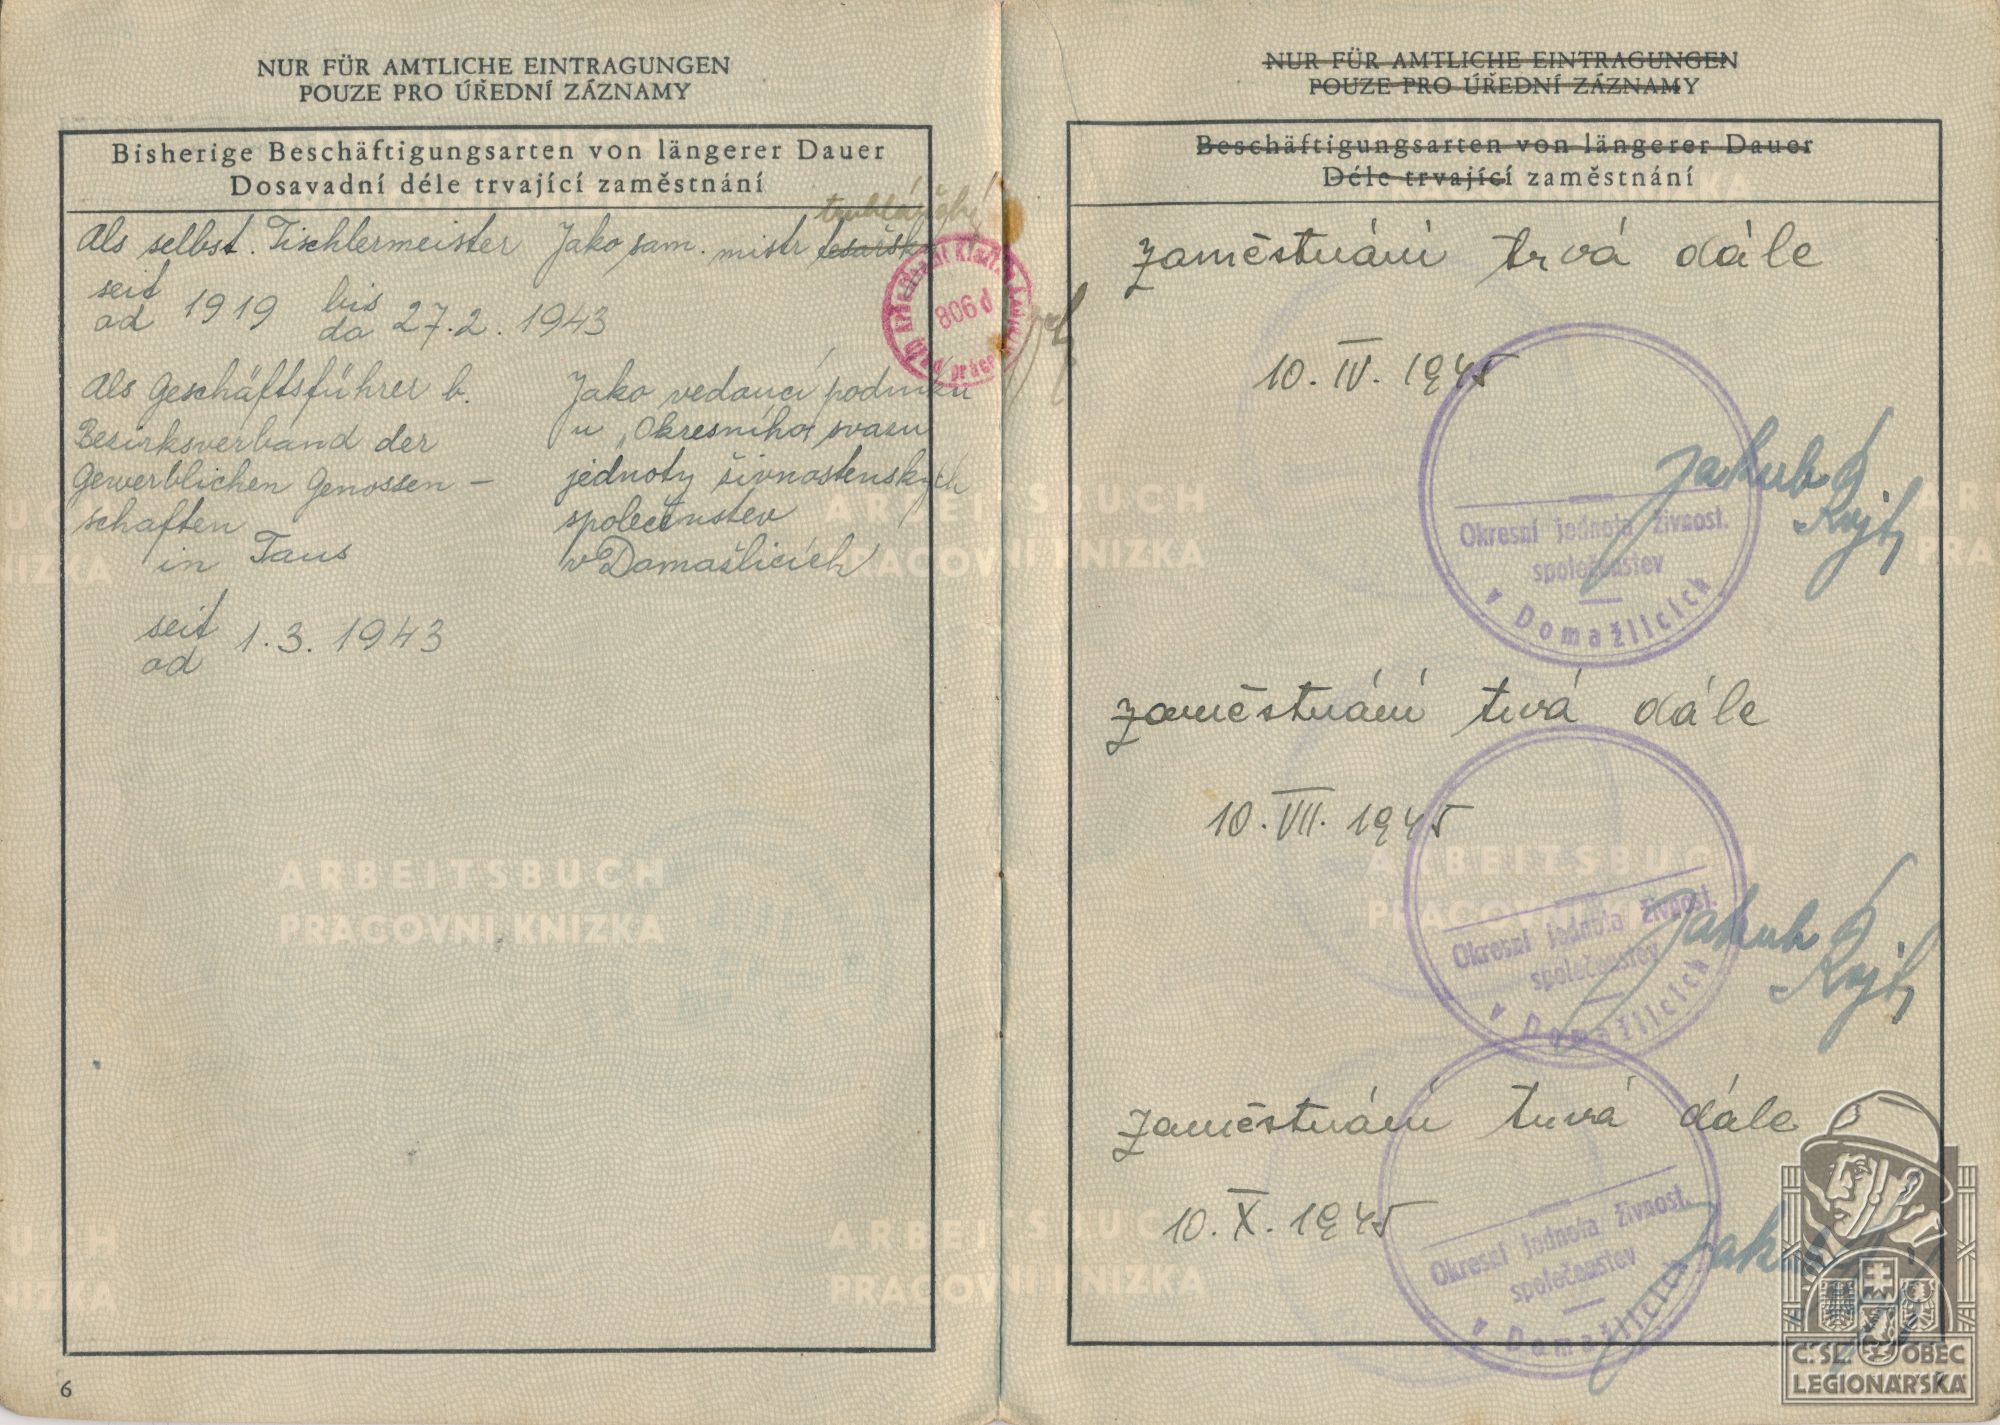 NUR FÜR AMTLICHE EINTRAGUNGEN
POUZE PRO ÚŘEDNÍ ZÁZNAMY
Bisherige Beschäftigungsarten von längerer Dauer
Dosavadní déle trvající zaměstnání
truhlářský
Als selbst. Tischlermeister Jako sam. mistr tesařský
seit
od 1919 bis
do 27.2. 1943
806d
Als Geschäftsführer b.
Bezirksverband der
Gewerblichen Genossen-
schaften
in Taus
Jako vedoucí podniku
u „Okresního svazu
jednoty živnostenských
společenstev
v Domažlicích
seit
od 1.3. 1943
ARBEITSBUCH
PRACOVNI KNIZKA
6
NUR FÜR AMTLICHE EINTRAGUNGEN
POUZE PRO ÚŘEDNÍ ZÁZNAMY
Beschäftigungsarten von längerer Dauer
Déle trvající zaměstnání
zaměstnání trvá dále
10. IV. 1945
Okresní jednota živnost.
společenstev
v Domažlicích
Jakub
zaměstnání trvá dále
10. VII. 1945
Okresní jednota živnost.
společenstev
v Domažlicích
Jakub
zaměstnání trvá dále
10. X. 1945
Okresní jednota živnost.
společenstev
v Domažlicích
ARBEITSBUCH
PRACOVNI KNIZKA
Č.SL. OBEC
LEGIONÁŘSKÁ